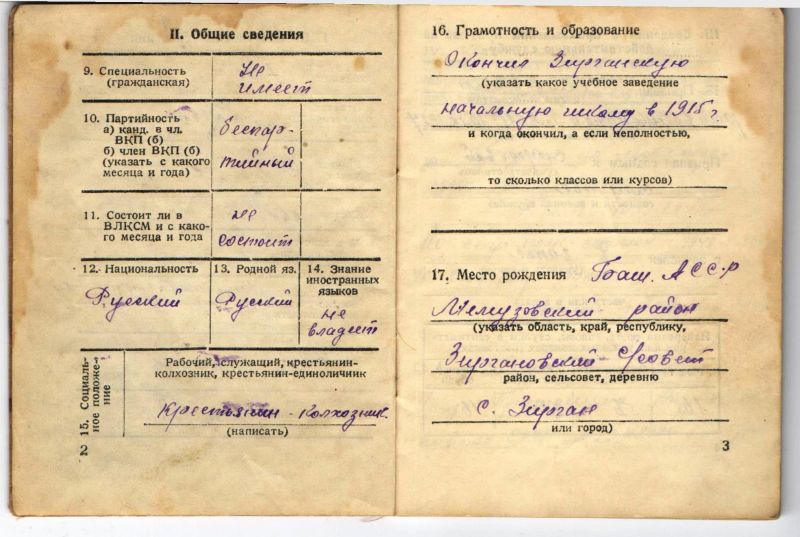 II. Общие сведения
9. Специальность
(гражданская)
Не
имеет
10. Партийность
а) канд. в чл.
ВКП (б)
б) член ВКП (б)
(указать с какого
месяца и года)
беспар-
тийный
11. Состоит ли в
ВЛКСМ и с како-
го месяца и года
не
состоит
12. Национальность
Русский
13. Родной яз.
Русский
14. Знание
иностранных
языков
не
владеет
15. Социаль-
ное положе-
ние
Рабочий, служащий, крестьянин-
колхозник, крестьянин-единоличник
Крестьянин-колхозник.
(написать)
2
16. Грамотность и образование
Окончил Зирганскую
(указать какое учебное заведение
начальную школу в 1915 г.
и когда окончил, а если неполностью,
то сколько классов или курсов)
17. Место рождения Баш. АССР
район
(указать область, край, республику,
Зиргановский С/совет
район, сельсовет, деревню
с. Зирган
или город)
3